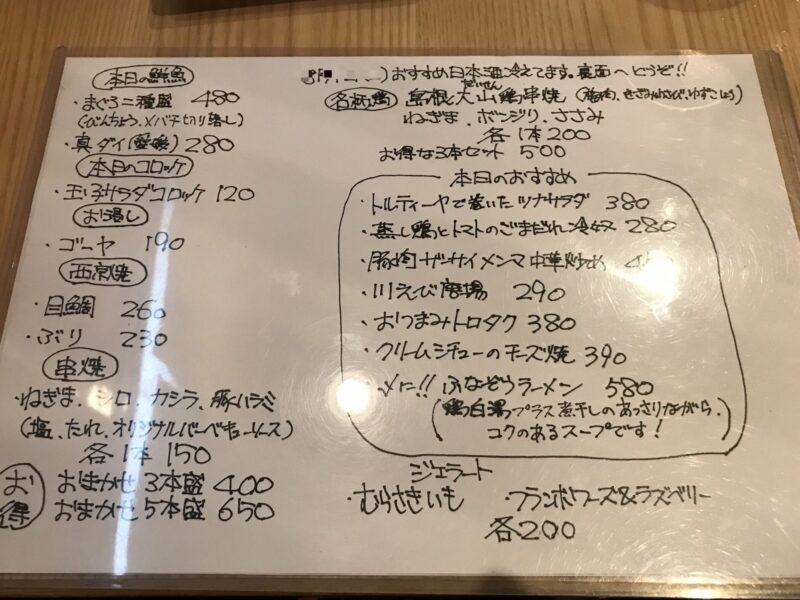 本日の鮮魚
・まぐろ二種盛 480
(びんちょう、メバチ切り落し)
・真ダイ(愛媛) 280
本日のコロッケ
・玉子サラダコロッケ 120
お浸し
・ゴーヤ 190
西京焼
・目鯛 260
・ぶり 230
串焼
・ねぎま、シロ、カシラ、豚ハラミ
(塩、たれ、オリジナルバーベキューソース)
各1本 150
お得
おまかせ 3本盛 400
おまかせ 5本盛 650
)おすすめ日本酒冷えてます。裏面へどうぞ!!
だいせん
名柄鶏 島根と大山鶏串焼 (梅肉、きざみわさび、ゆずこしょう)
ねぎま、ボンジリ、ささみ
各1本200
お得な3本セット 500
本日のおすすめ
・トルティーヤで巻いたツナサラダ 380
・蒸し鶏とトマトのごまだれ冷奴 280
・豚肉ザーサイメンマ中華炒め
・川えび唐揚 290
・おつまみトロタク 380
・クリームシチューのチーズ焼 390
・〆に!! ふなぞうラーメン 580
(鶏白湯プラス煮干しのあっさりながら、
コクのあるスープです!)
ジェラート
・むらさきいも フランボワーズ&ラズベリー
各200